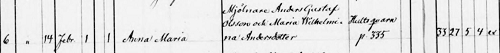 Mjölnare Anders Gustaf
Olsson och Maria Wilhelmi- Hultsqvarn
6 " 14 Febr. 1 1 Anna Maria na Andersdotter p 335 33 27 5 4